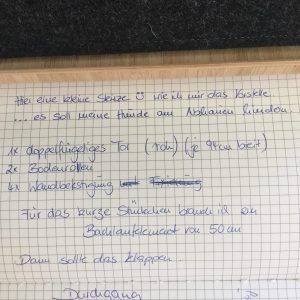 Hier eine kleine Skizze wie ich mir das Vorstelle
...es soll meine Hunde am Abhauen hindern.
1x doppelflügeliges Tor (roh) (je 94cm breit)
2x Bodenrollen
4x Wandbefestigung
Für das kurze Stückchen brauch ich ein
von 50cm
Dann sollte das klappen.
Durchgang